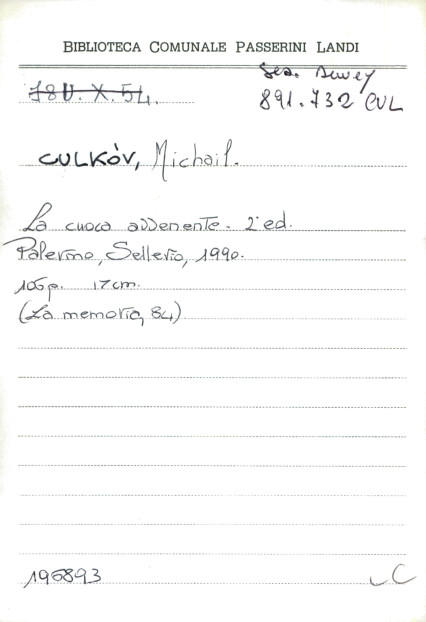 BIBLIOTECA COMUNALE PASSERINI LANDI
Sez. Dewey
78U.X.54.
891.732 CUL
CULKÓV, Michail.
La cuoca avvenente. 2ª ed.
Palermo, Sellerio, 1990.
106p. 17cm.
(La memoria, 84)
196893